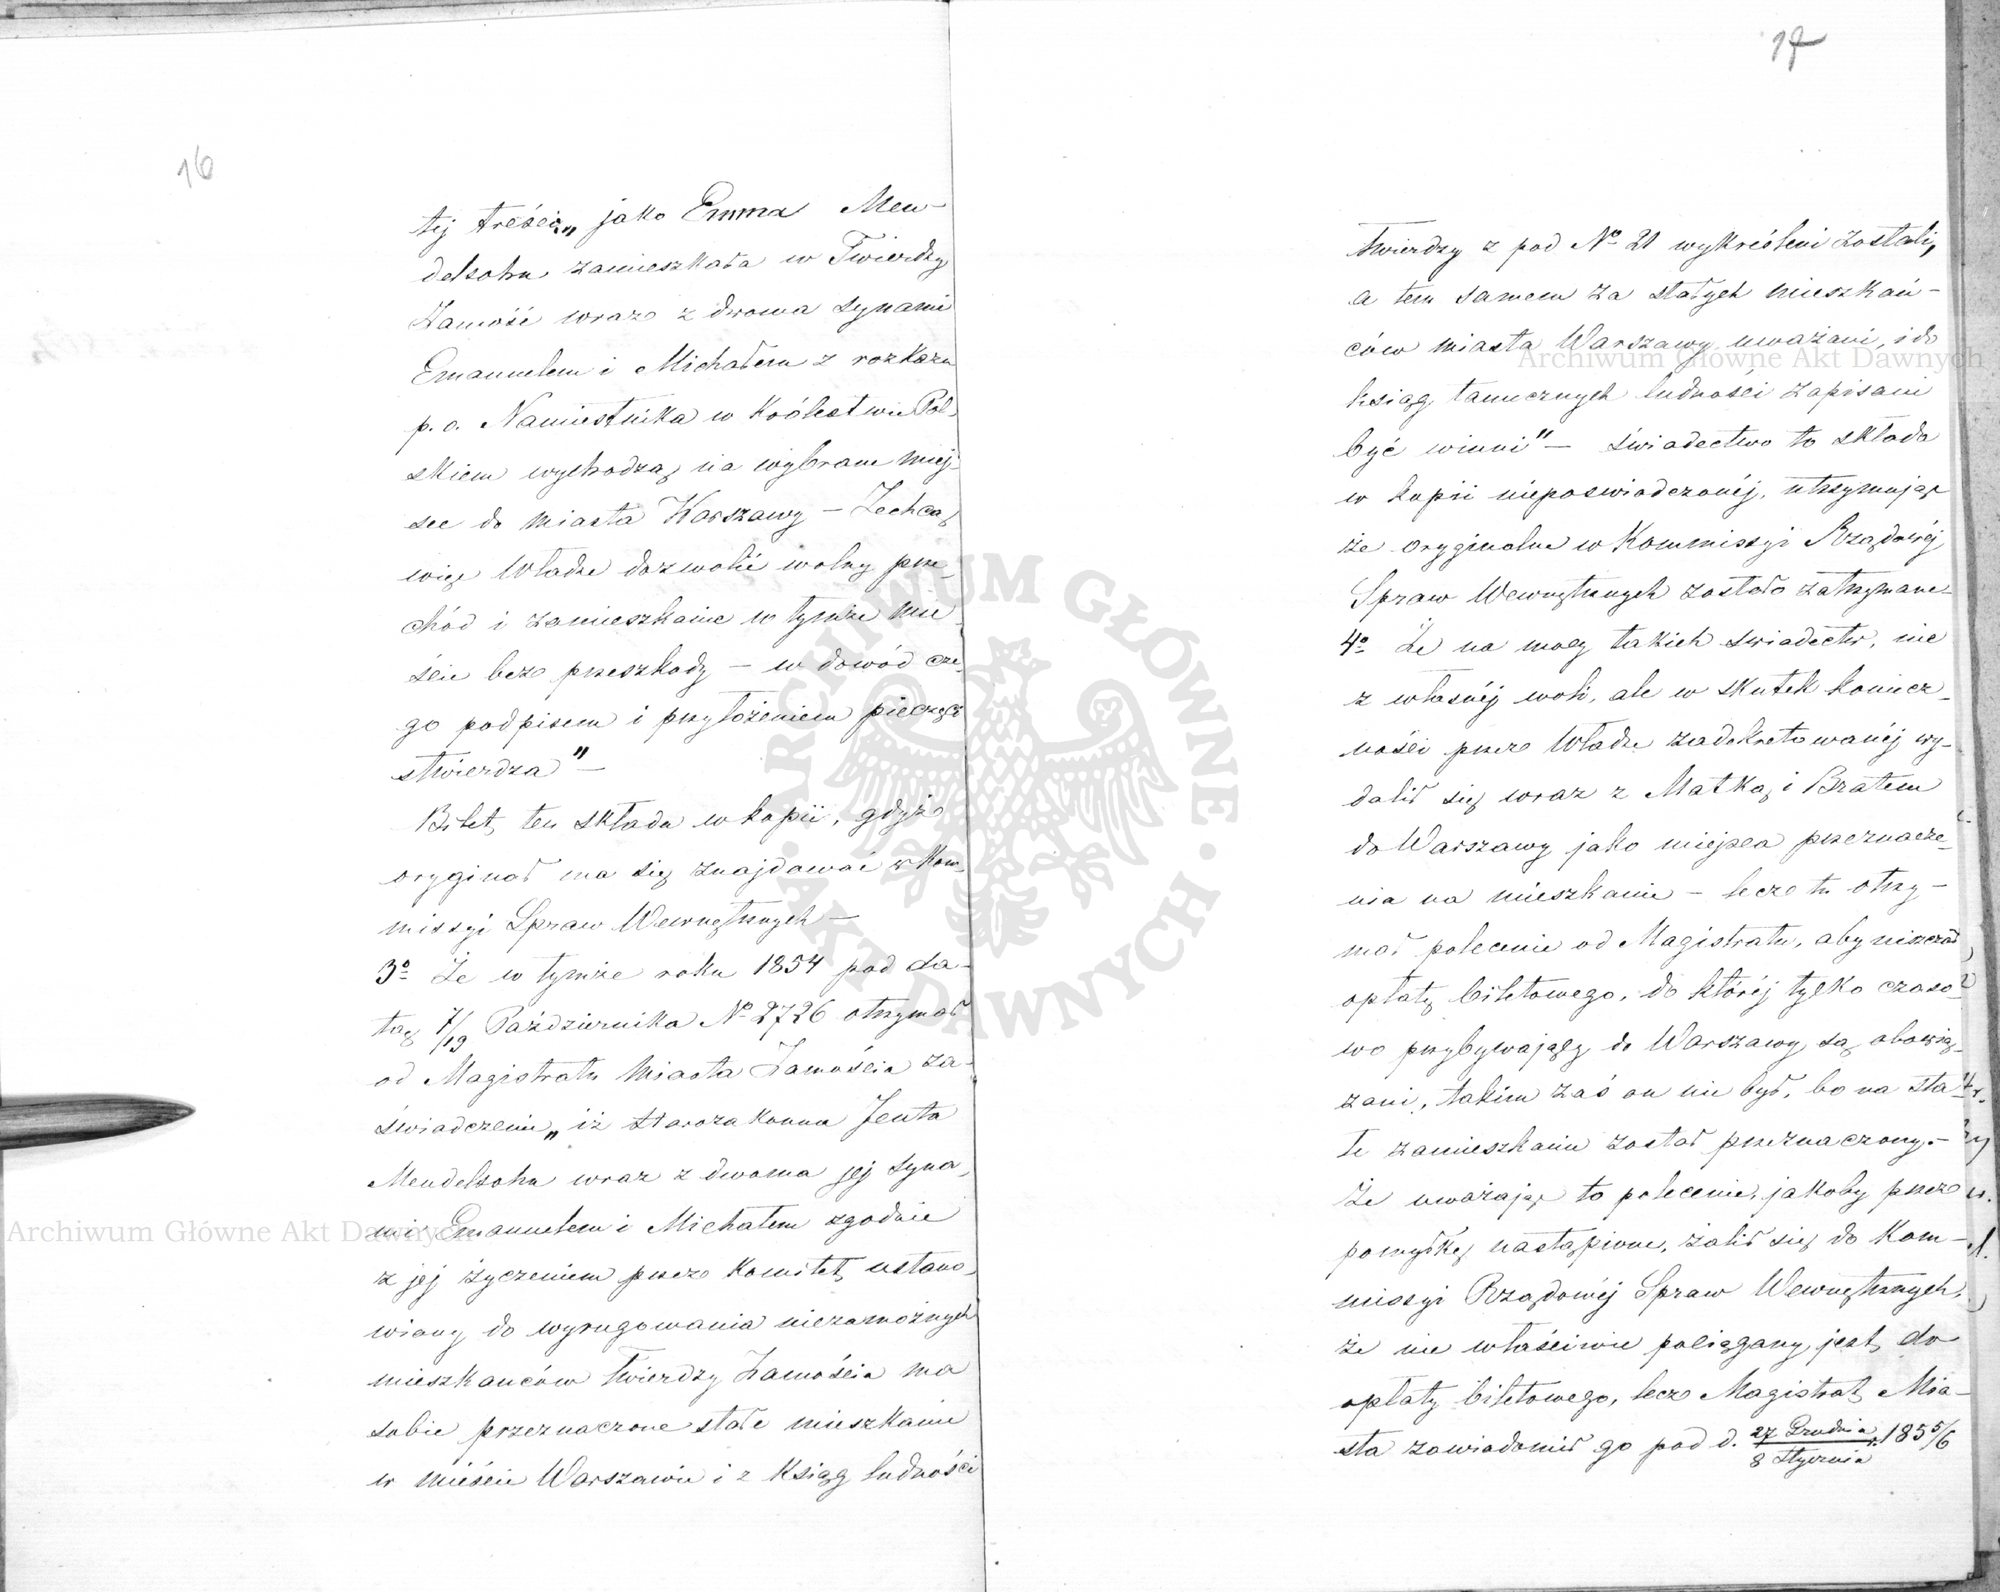 16
tej treści „jako Emma Men-
delsohn zamieszkała w Twierdzy
Zamość wraz z dwoma synami
Emanuelem i Michałem z rozkazu
p. o. Namiestnika w Królestwie Pol-
skiem wychodzą na wybrane miej-
sce do miasta Warszawy – Zechcą
więc Władze dozwolić wolny prze-
chód i zamieszkanie w tymże mie-
ście bez przeszkody – w dowód cze-
go podpisem i przyłożeniem pieczęci
stwierdza" –
Bilet ten składa w kopii, gdyż
oryginał ma się znajdować w Kom-
missyi Spraw Wewnętrznych –
3º Że w tymże roku 1854 pod da-
tą 7/19 Października Nº 2726 otrzymał
od Magistratu Miasta Zamościa za-
świadczenie „iż starozakonna Jenta
Mendelsohn wraz z dwoma jej syna-
mi Emanuelem i Michałem zgodnie
z jej życzeniem przez Komitet ustano-
wiony do wyrugowania niezamożnych
mieszkańców twierdzy Zamościa ma
sobie przeznaczone stałe mieszkanie
w mieście Warszawie i z Ksiąg ludności
17
twierdzy z pod Nº 21 wykreśleni zostali,
a tem samem za stałych mieszkań-
ców miasta Warszawy uważani, i do
ksiąg tamecznych ludności zapisani
być winni" – świadectwo to składa
w kopii niepoświadczonéj, utrzymując
że oryginalne w Kommissyi Rządowéj
Spraw Wewnętrznych zostało zatrzymane –
4º Że na mocy takich świadectw, nie
z własnéj woli, ale w skutek koniecz-
ności przez Władze zadekretowanéj wy-
dalił się wraz z Matką i Bratem
do Warszawy jako miejsca przeznacze-
nia na mieszkanie – lecz tu otrzy-
mał polecenie od Magistratu, aby niszczał
opłatę biletowego, do któréj tylko czaso-
wo przybywający do Warszawy są obowią-
zani, takim zaś on nie był, bo na sta-
łe zamieszkanie został przeznaczony. –
Że uważając to polecenie, jakoby przez
pomyłkę nastąpione, żalił się do Kom-
missyi Rządowéj Spraw Wewnętrznych,
że nie właściwie pociągany jest do
opłaty biletowego, lecz Magistrat Mia-
sta zawiadomił go pod d. 27 Grudnia / 8 Stycznia r. 1855/6
Archiwum Główne Akt Dawnych
Archiwum Główne Akt Dawnych
ARCHIWUM GŁÓWNE · AKT DAWNYCH ·